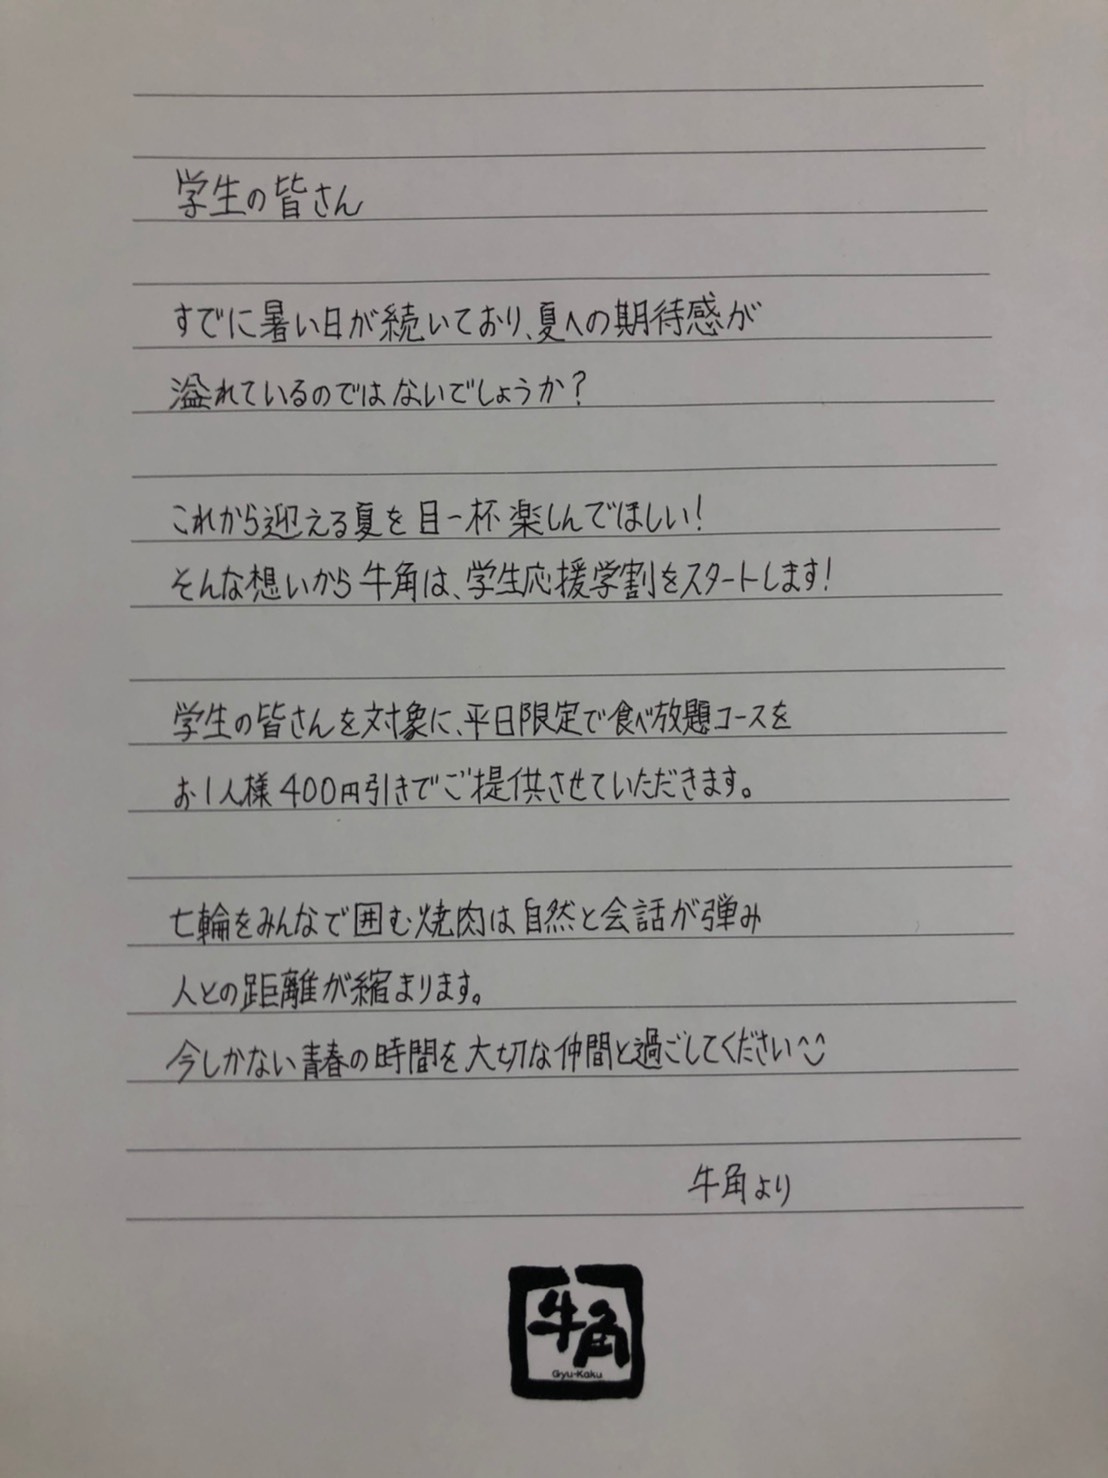 学生の皆さん
すでに暑い日が続いており、夏への期待感が
溢れているのではないでしょうか？
これから迎える夏を目一杯楽しんでほしい！
そんな想いから牛角は、学生応援学割をスタートします！
学生の皆さんを対象に、平日限定で食べ放題コースを
お1人様400円引きでご提供させていただきます。
七輪をみんなで囲む焼肉は自然と会話が弾み
人との距離が縮まります。
今しかない青春の時間を大切な仲間と過ごしてください^^
牛角より
牛角
Gyu-Kaku